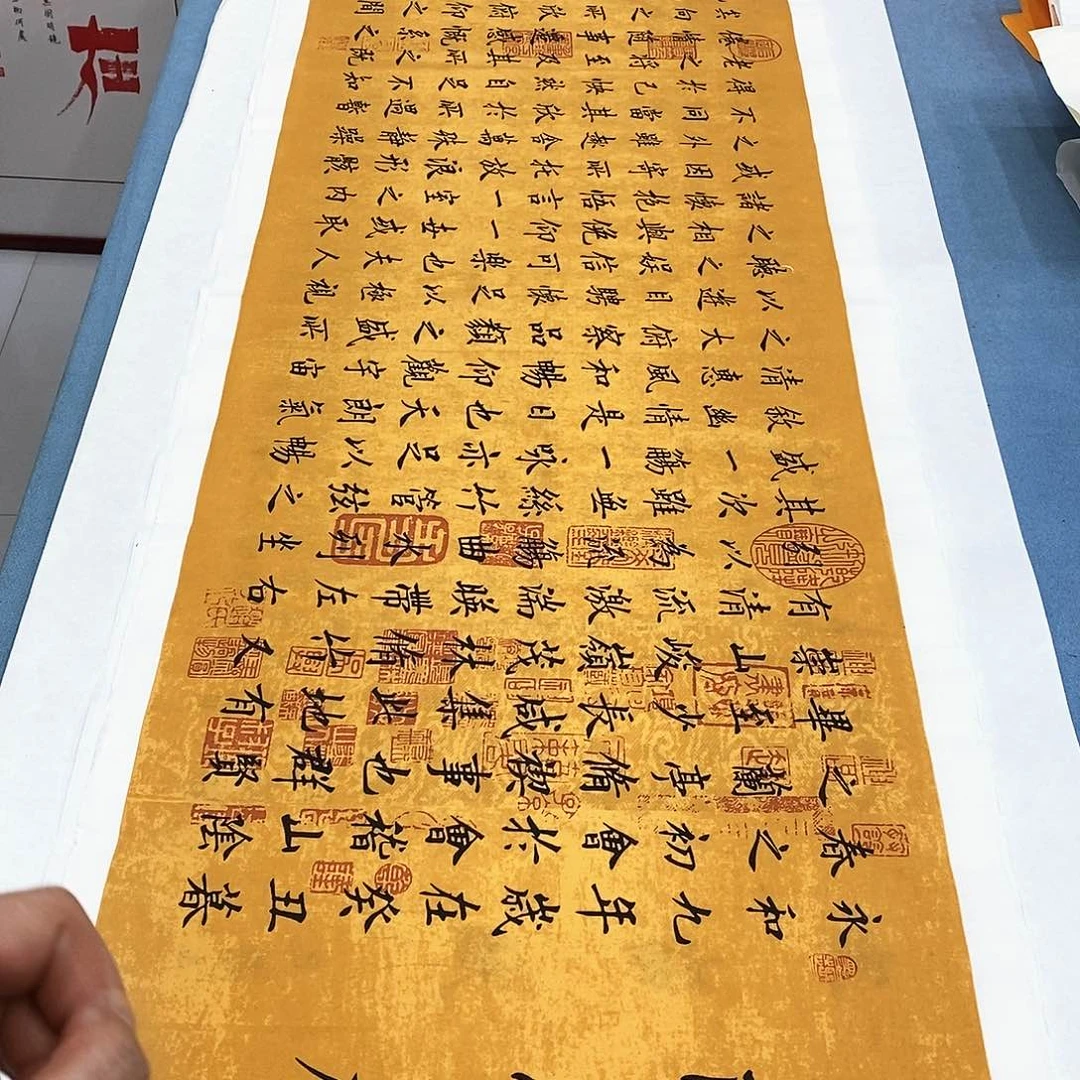 永和九年歲在癸丑暮
春之初會於會稽山陰
之蘭亭脩禊事也群賢
畢至少長咸集此地有
崇山峻嶺茂林脩竹又
有清流激湍暎帶左右
引以為流觴曲水列坐
其次雖無絲竹管弦之
盛一觴一詠亦足以暢
敘幽情是日也天朗氣
清惠風和暢仰觀宇宙
之大俯察品類之盛所
以遊目騁懷足以極視
聽之娛信可樂也夫人
之相與俛仰一世或取
諸懷抱悟言一室之內
或因寄所托放浪形骸
之外雖趣舍萬殊靜躁
不同當其欣於所遇暫
得於己快然自足不
老之將至及其所之既
惓情隨事遷感慨係之
矣向之所欣俛仰之間